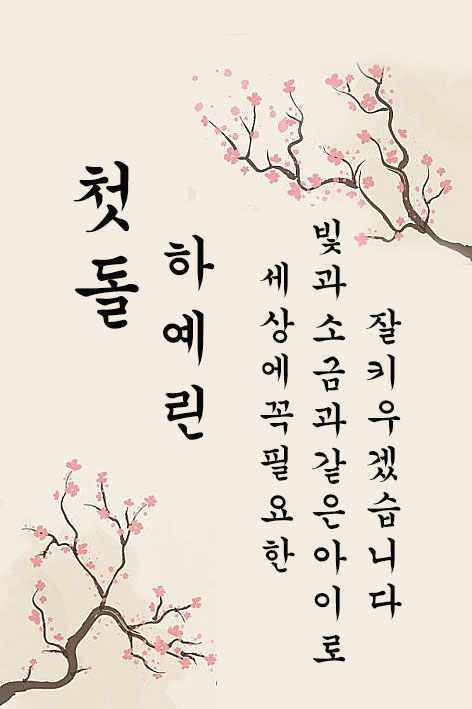 첫돌
하예린
세상에꼭필요한
빛과소금과같은아이로
잘키우겠습니다